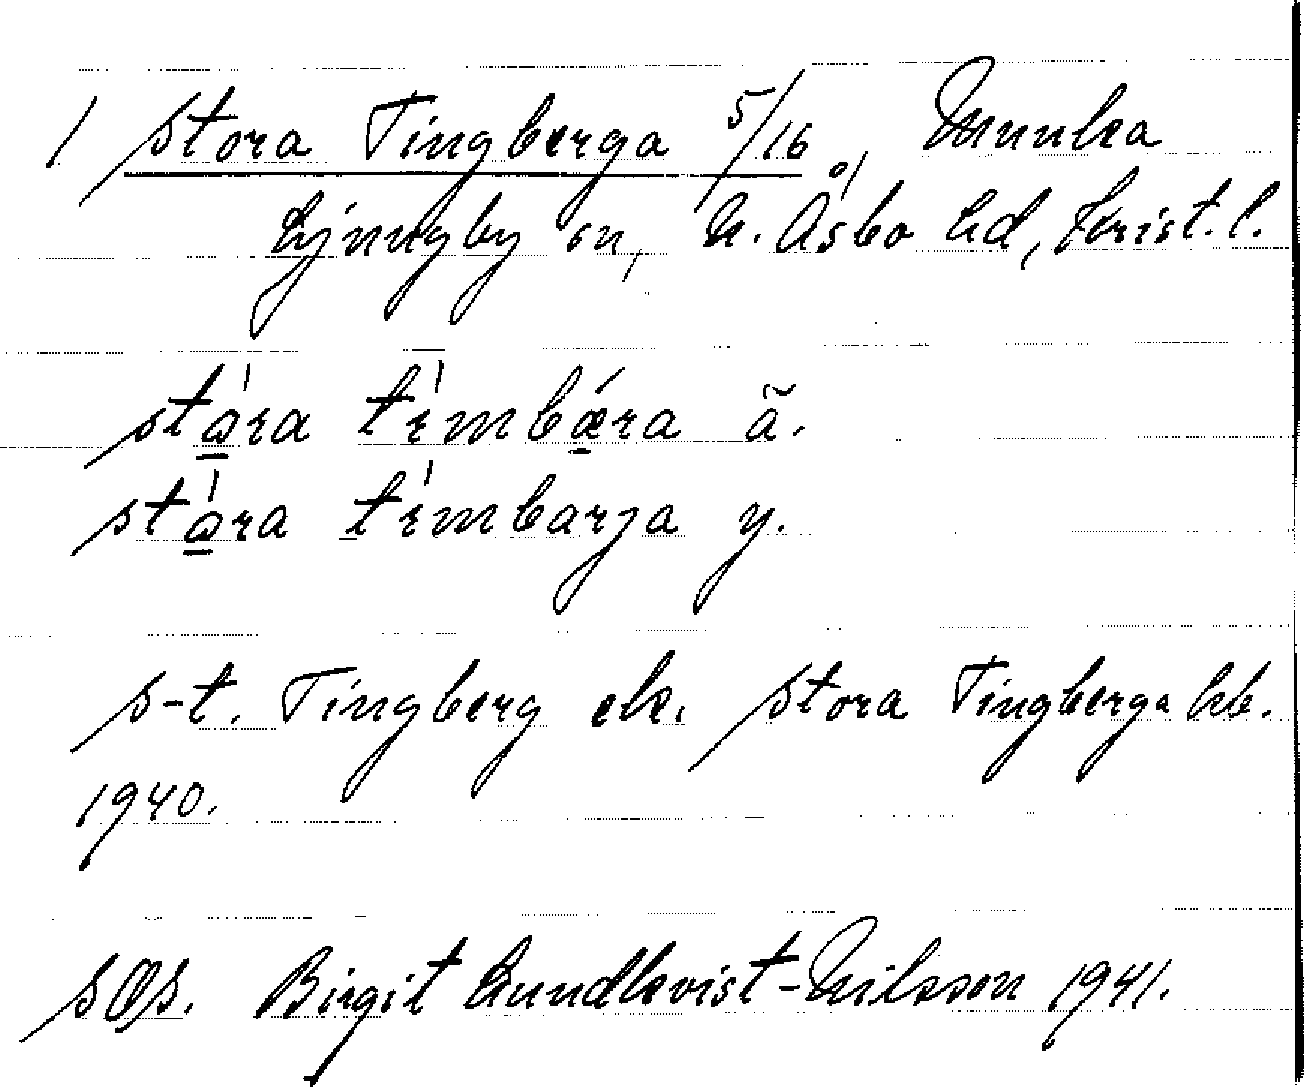 1 Stora Tingberga 5/16, Munka
Ljungby sn, N. Åsbo hd, Krist. l.
stɷ̲́ra tímbǽ̲ra ã.
stɷ̲́ra tímbarja y.
s-t. Tingberg ek. Stora Tingberga hb.
1940.
SOS. Birgit Lundkvist-Nilsson 1941.